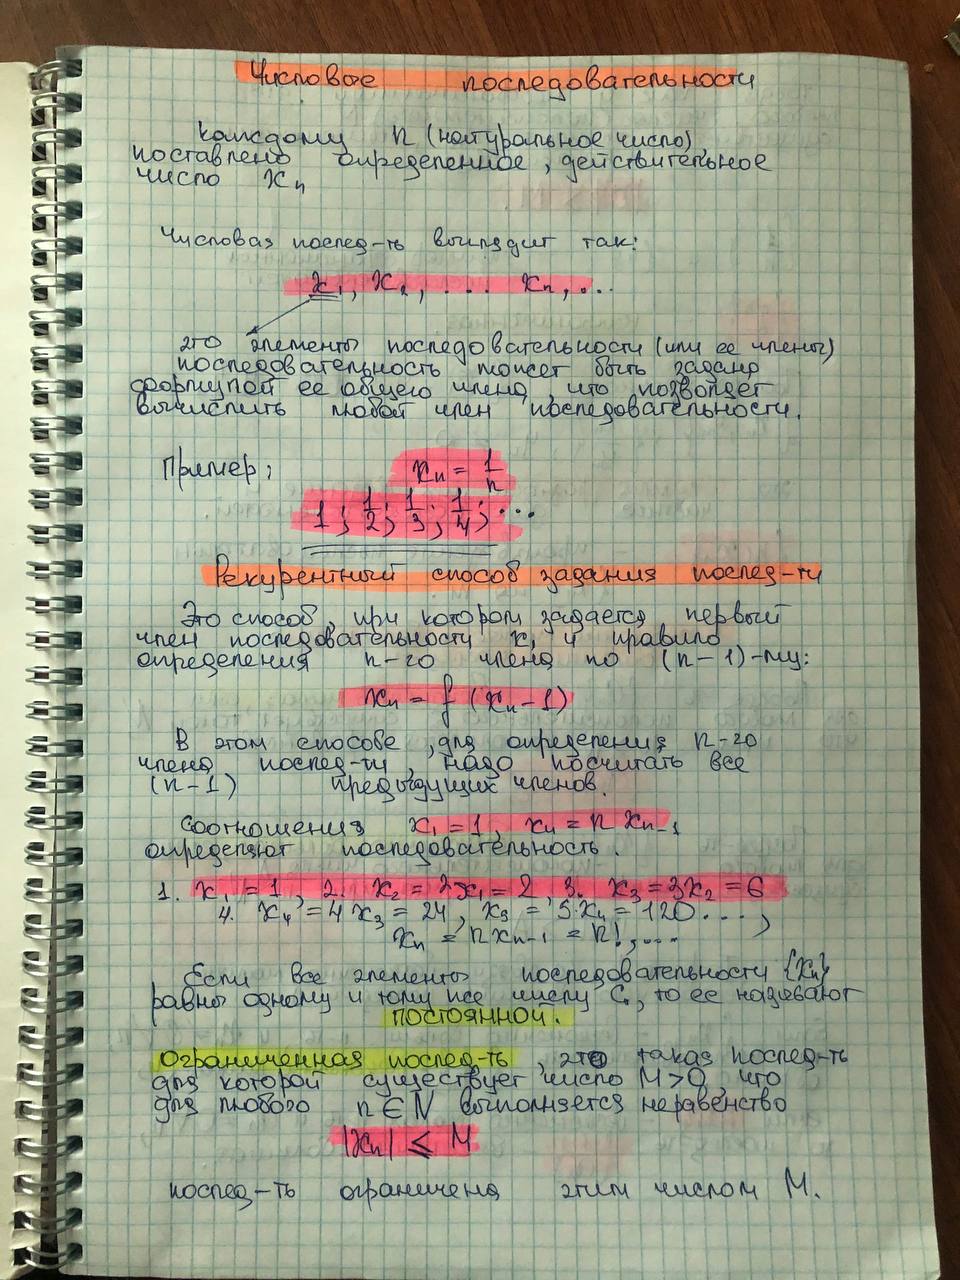 Числовые последовательности
Каждому n (натуральное число),
поставлено определенное, действительное
число xₙ
Числовая послед-ть выглядит так:
x₁, x₂, ... xₙ, ...
это элементы последовательности (или ее члены)
последовательность может быть задана
формулой ее общего члена, что позволяет
вычислить любой член последовательности.
Пример:
xₙ = 1/n
1; 1/2; 1/3; 1/4; ...
Рекурентный способ задания послед-ти
Это способ, при котором задается первый
член последовательности x₁ и правило
определения n-го члена по (n-1)-му:
xₙ = f (xₙ-1)
В этом способе, для определения n-го
члена послед-ти, надо посчитать все
(n-1) предыдущих членов.
соотношения x₁ = 1, xₙ = n xₙ₋₁
определяют последовательность.
1. x₁ = 1, 2. x₂ = 2x₁ = 2, 3. x₃ = 3x₂ = 6
4. x₄ = 4x₃ = 24, x₃ = 5·x₄ = 120...,
xₙ = nxₙ₋₁ = n!, ...
Если все элементы последовательности {xₙ}
равны одному и тому же числу C, то ее называют
постоянной.
Ограниченная послед-ть, это такая послед-ть
для которой существует число M>0, что
для любого n ∈ N выполняется неравенство
|xₙ| ≤ M
послед-ть ограничена этим числом M.